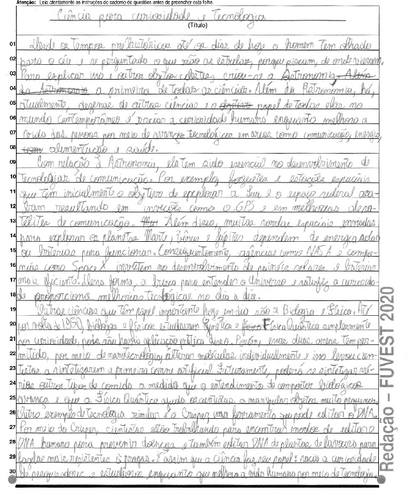 Atenção: Leia atentamente as instruções do caderno de questões antes de preencher esta folha.
Ciência para curiosidade e Tecnologia
(Título)
01 Desde os tempos pré-históricos até os dias de hoje o homem tem olhado
02 para o céu e se perguntado o que são as estrelas, porque piscam, de onde vieram.
03 Para explicar isso e outros objetos celestes, criou-se a Astronomia,
04 a primeira de todas as ciências. Além da Astronomia, há,
05 atualmente, dezenas de outras ciências e o papel de todas elas no
06 mundo contemporâneo é saciar a curiosidade humana enquanto melhora a
07 vida das pessoas por meio de avanços tecnológicos em áreas como comunicação, energia,
08 alimentação e saúde.
09 Com relação à Astronomia, ela tem sido essencial no desenvolvimento de
10 tecnologias de comunicação. Por exemplo, foguetes e estações espaciais
11 que tem inicialmente o objetivo de explorar a Lua e o espaço sideral
12 resultando em invenções como o GPS e em melhorias de
13 satélites de comunicação. Além disso, muitas sondas espaciais enviadas
14 para explorar os planetas Marte, Vênus e Júpiter dependem de energia solar
15 ou baterias para funcionar. Consequentemente, agências como NASA e
16 como Space X investem no desenvolvimento de painéis solares e baterias
17 mais eficientes. Dessa forma, a busca para entender o Universo e satisfaz a curiosidade
18 e proporciona melhorias tecnológicas no dia a dia.
19 Outras ciências que têm papel importante hoje em dia são a Biologia e Física.
20 por volta de 1950, biólogos e físicos estudaram Genética e Física Quântica simplesmente
21 por curiosidade, pois não havia aplicação prática
22 por meio de nanotecnologia, alterar moléculas individualmente e
23 a sintetizarem a primeira carne artificial. Futuramente, poderá se sintetizar
24 outros tipos de comida a medida que o entendimento de
25 avança e que a Física Quântica ajuda os cientistas a manipular objetos muito pequenos.
26 Outro exemplo de tecnologia similar é o Crisper, uma ferramenta que pode editar o DNA.
27 Por meio do Crisper, cientistas estão trabalhando para encontrar modos de editar o
28 DNA humano para prevenir doenças e também editar DNA de plantas de lavouras para
29 torná-las mais resistentes à pragas. É assim que a ciência faz seu papel: sacia a curiosidade
30 enquanto que melhora a vida humana por meio de tecnologia.
Redação – FUVEST 2020